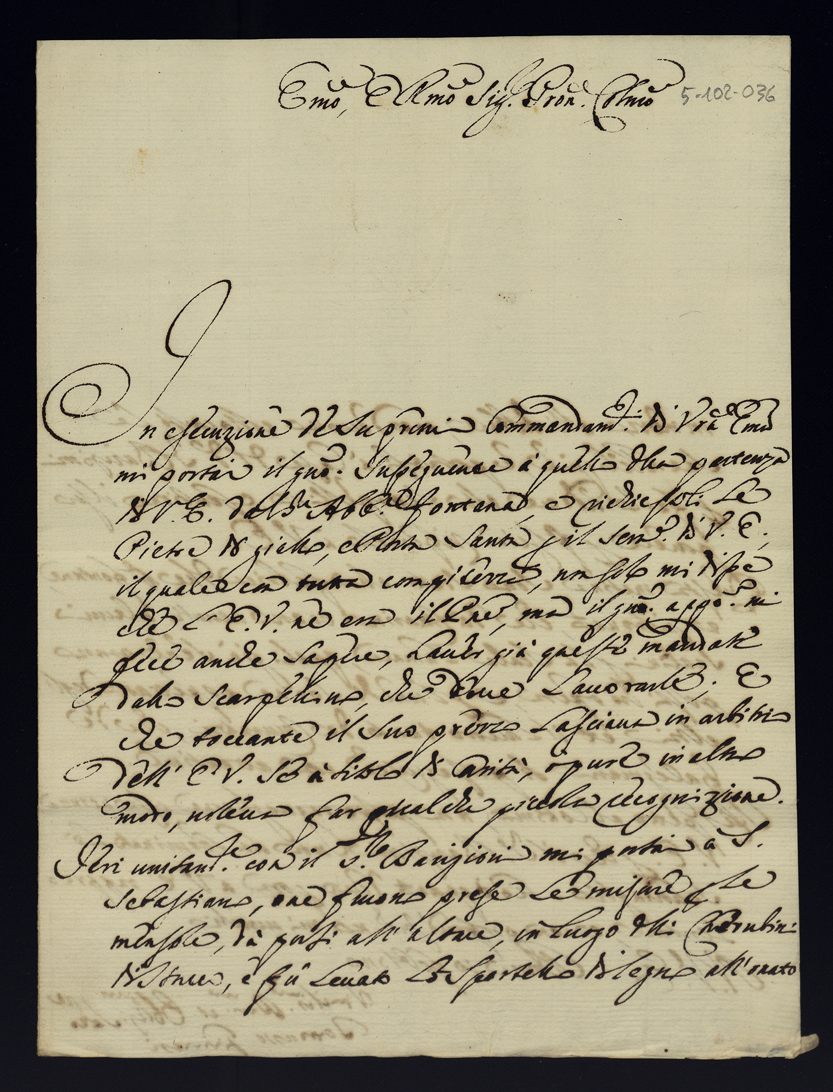 Emō, E Rmō Sig. Pron. Colmō 5-102-036
In esecuzione de Supremi Commandam.ti di Vrā Emā
mi portai il gno. susseguente à quello della partenza
di V. E. dal Sr. Abb.e Fontana, e richiesseli Le
Pietre di giallo, e Porta Santa p il Serv.o di V. E.,
il quale con tutta compitezza, non solo mi disse
che L'E. V. ne era il Pne, ma il gno. appo. mi
fece anche sapere, haver già queste mandate
dallo Scarpellino, che deve Lavorarle; E
che toccante il suo prezzo Lasciava in arbitrio
dell' E. V. se à titolo di Carità, o pure in altro
modo, voleva far qualche piccola recognizione.
Ieri unitam.te con il Sr. Barigioni mi portai à S.
Sebastiano, ove furono prese Le misure p Le
mensole, da porsi all' altare, in Luogo delli Cherubini
di stucco, e fù Levato Lo Sportello di legno all' orato